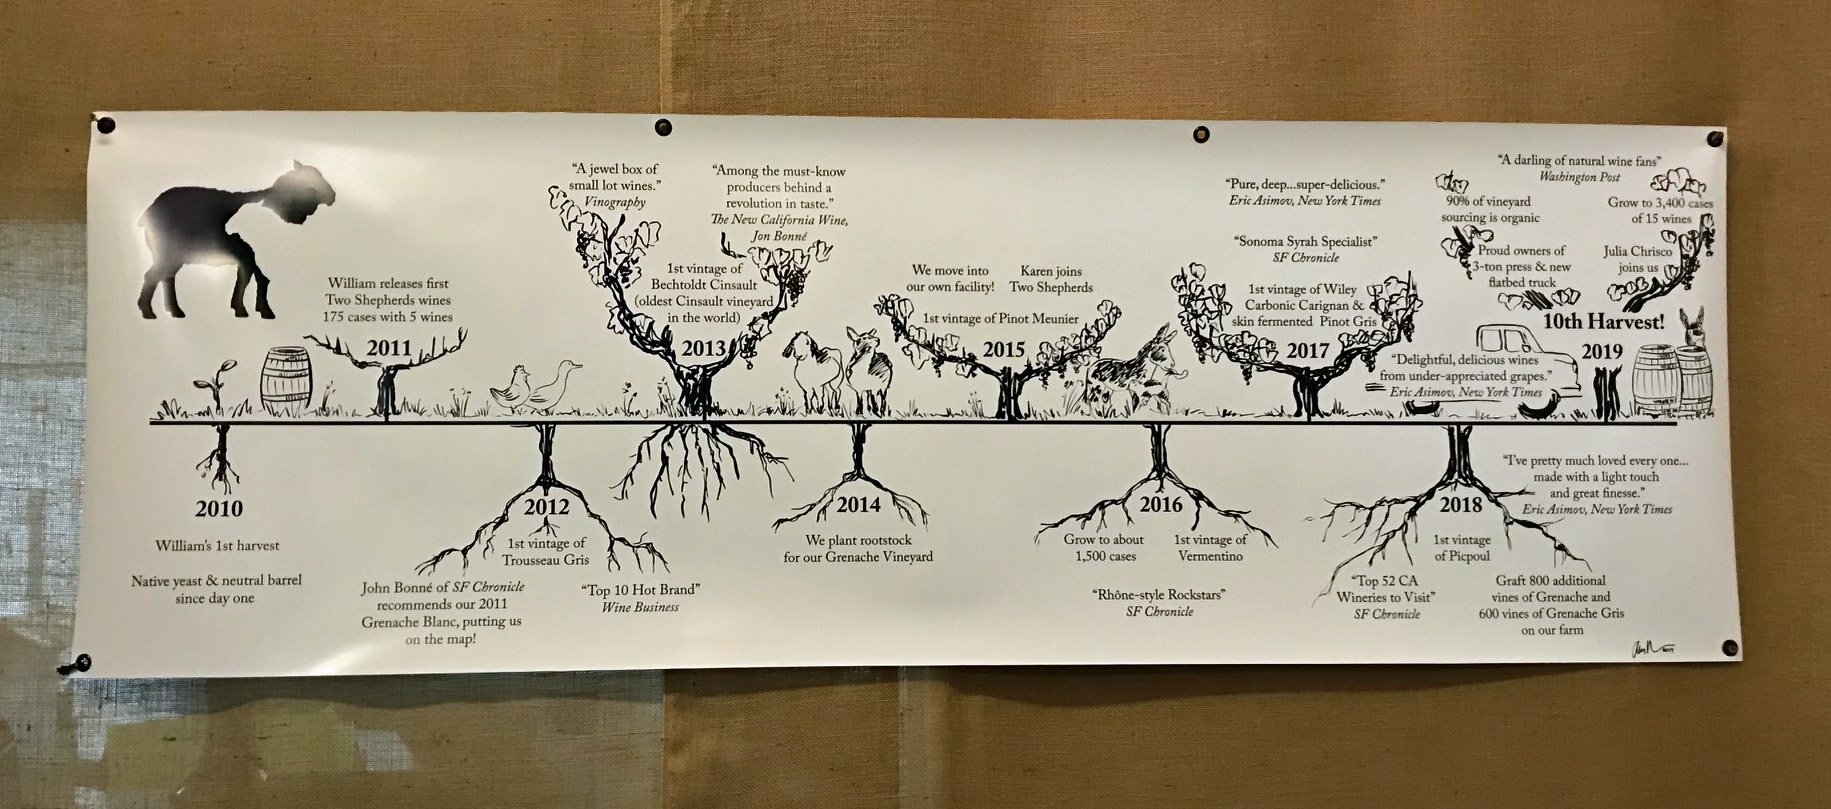 2010
William's 1st harvest
Native yeast & neutral barrel
since day one
William releases first
Two Shepherds wines
175 cases with 5 wines
2011
2012
1st vintage of
Trousseau Gris
John Bonné of SF Chronicle
recommends our 2011
Grenache Blanc, putting us
on the map!
“Top 10 Hot Brand”
Wine Business
“A jewel box of
small lot wines.”
Vinography
“Among the must-know
producers behind a
revolution in taste.”
The New California Wine,
Jon Bonné
1st vintage of
Bechtoldt Cinsault
(oldest Cinsault vineyard
in the world)
2013
2014
We plant rootstock
for our Grenache Vineyard
We move into
our own facility!
Karen joins
Two Shepherds
1st vintage of Pinot Meunier
2015
2016
Grow to about
1,500 cases
1st vintage of
Vermentino
“Rhône-style Rockstars”
SF Chronicle
“Pure, deep...super-delicious.”
Eric Asimov, New York Times
“Sonoma Syrah Specialist”
SF Chronicle
1st vintage of Wiley
Carbonic Carignan &
skin fermented Pinot Gris
2017
“Delightful, delicious wines
from under-appreciated grapes.”
Eric Asimov, New York Times
2018
1st vintage
of Picpoul
“Top 52 CA
Wineries to Visit”
SF Chronicle
Graft 800 additional
vines of Grenache and
600 vines of Grenache Gris
on our farm
“I've pretty much loved every one...
made with a light touch
and great finesse.”
Eric Asimov, New York Times
“A darling of natural wine fans”
Washington Post
90% of vineyard
sourcing is organic
Grow to 3,400 cases
of 15 wines
Proud owners of
3-ton press & new
flatbed truck
Julia Chrisco
joins us
10th Harvest!
2019